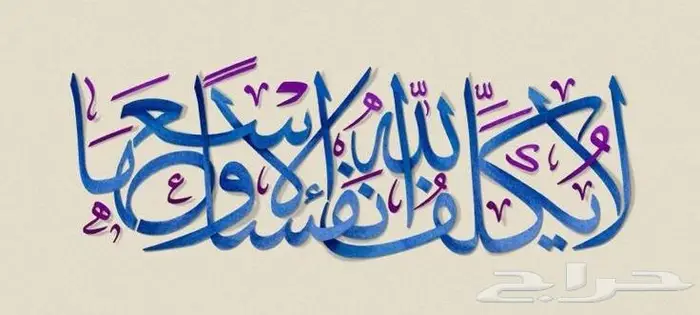 لَا يُكَلِّفُ اللَّهُ نَفْسًا إِلَّا وُسْعَهَا
حراج